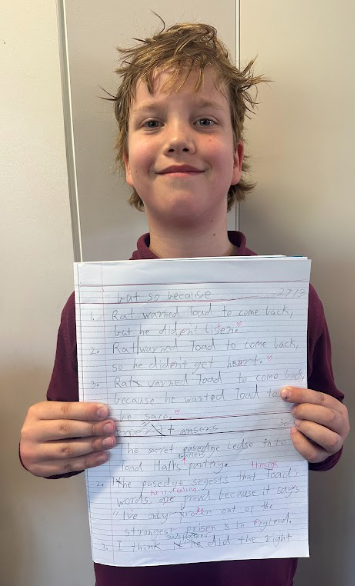 but so because 27/3
1. Rat warned Toad to come back,
but he dident listen.
2. Rat warned Toad to come back,
so he didn't get heart.
3. Rat warned Toad to come back
because he wanted Toad to
be safe.
The secret passage leads into
Toad Halls pantrge
4. The passage sugests that Toad
words, are proud because it says
"Ive broken out of the
strongest prison in England.
I think he did the right